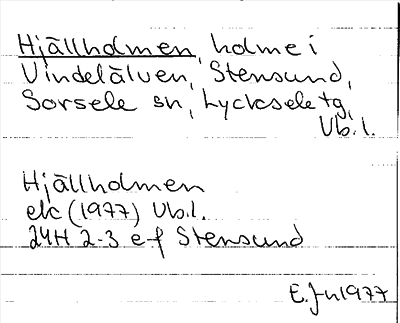 Hjällholmen, holme i
Vindelälven, Stensund,
Sorsele sn, Lycksele tg,
Vb.l.
Hjällholmen
ek (1977) Vb.l.
24H 2-3 e-f Stensund
E. Jn 1977